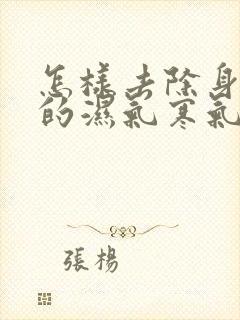 怎樣去除身
的濕氣寒氣
張楊